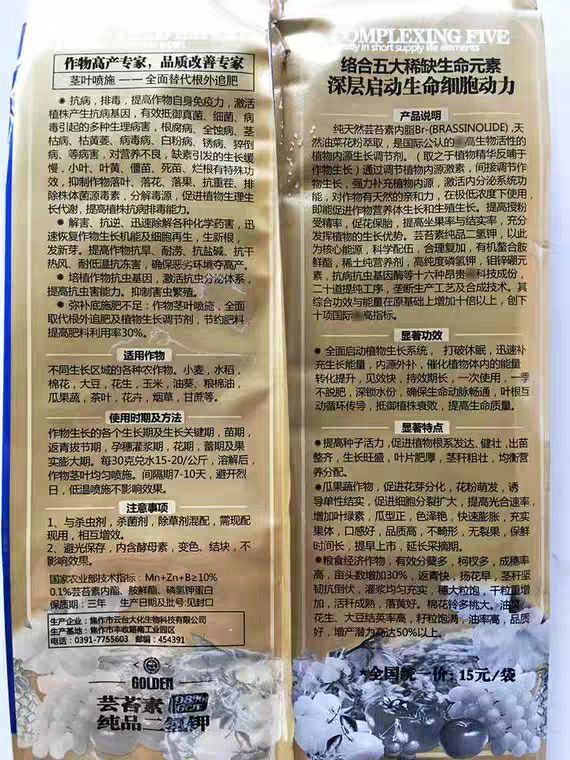 作物高产专家，品质改善专家
茎叶喷施 —— 全面替代根外追肥
● 抗病，排毒，提高作物自身免疫力，激活
植株产生抗病基因，有效抵御真菌、细菌、病
毒引起的多种生理病害，根腐病、全蚀病、茎
枯病、枯黄萎、病毒病、白粉病、锈病、猝倒
病、等病害，对营养不良，缺素引发的生长缓
慢，小叶、叶黄、僵苗、死苗、烂根有特殊功
效，抑制作物落叶、落花、落果、抗重茬、排
除株体菌源毒素，分解毒源，促进植物生理生
长代谢，提高植株抗病排毒能力。
● 解害、抗逆、迅速除解各种化学药害，迅
速恢复作物生长机能及细胞再生，生新根，
发新芽。提高作物抗旱、耐涝、抗盐碱、抗干
热风、耐低温抗冻害，确保恶劣环境夺高产。
● 培植作物抗虫基因，激活抗虫分泌体系，
提高抗虫害能力。抑制害虫繁殖。
● 弥补底施肥不足：作物茎叶喷施，全面
取代根外追肥及植物生长调节剂，节约肥料，
提高肥料利用率30%。
适用作物
不同生长区域的各种农作物。小麦，水稻，
棉花，大豆，花生，玉米，油葵，粮棉油，
瓜果蔬，茶叶，花卉，烟草，甘蔗等。
使用时期及方法
作物生长的各个生长期及生长关键期，苗期，
返青拔节期，孕穗灌浆期，花期，蕾期及果
实膨大期。每30克兑水15-20/公斤，溶解后，
作物茎叶均匀喷施。间隔期7-10天，避开烈
日，低温喷施不影响效果。
注意事项
1、与杀虫剂，杀菌剂，除草剂混配，需现配
现用，相互增效。
2、避光保存，内含酵母素，变色、结块，不
影响效果。
国家农业部技术指标：Mn+Zn+B≥10%
0.1%芸苔素内酯、胺鲜酯、磷氢钾蛋白
保质期：三年 生产日期及批号:见封口
生产企业：焦作市云台大化生物科技有限公司
生产基地：焦作市丰收路南工业园区
电话：0391-7755603 邮编：454391
GOLDEN
芸苔素 98%
纯品二氢钾
COMPLEXING FIVE
in short supply life elements
络合五大稀缺生命元素
深层启动生命细胞动力
产品说明
纯天然芸苔素内脂Br-(BRASSINOLIDE),天
然油菜花粉萃取，是国际公认的 高生物活性的
植物内源生长调节剂。（取之于植物精华反哺于
作物生长）通过调节植物内源激素，间接调节作
物生长，强力补充植物内源，激活内分泌系统功
能，对作物有天然的亲和力，在极低浓度下使用
即能促进作物营养体生长和生殖生长。提高授粉
受精率，促花保胎，提高坐果率与结实率，充分
发挥植物的生长优势。芸苔素纯品二氢钾，以此
为核心能源，科学配伍，合理复加，有机螯合胺
鲜酯，稀土纯营养剂，高纯度磷氢钾，钼锌硼元
素，抗病抗虫基因酶等十六种昂贵 科技成份，
二十道提纯工序，垄断生产工艺及合成技术。其
综合功效与能量在原基础上增加十倍以上，创下
十项国际 高指标。
显著功效
● 全面启动植物生长系统， 打破休眠，迅速补
充生长能量，内源外补，催化植物体内的能量
转化提升，见效快，持效期长，一次使用，一季
不脱肥，深锁水份，确保生命动脉畅通，叶根互
动循环传导，抵御植株衰败，提高生命质量。
显著特点
●提高种子活力，促进植物根系发达，健壮，出苗
整齐，生长旺盛，叶片肥厚，茎秆粗壮，均衡营
养分配。
●瓜果蔬作物，促进花芽分化，花粉萌发，诱
导单性结实，促进细胞分裂扩大，提高光合速率，
增加叶绿素，瓜型正，色泽艳，快速膨胀，充实
果体，口感好，品质高，不畸形，无裂果，保鲜
时间长，提早上市，延长采摘期。
●粮食经济作物，有效分蘖多，枵杈多，成穗率
高，亩头数增加30%，返青快，扬花早，茎秆坚
韧抗倒伏，灌浆均匀充实，穗大粒饱，千粒重增
加，活秆成熟，落黄好。棉花铃多桃大。油
花生、大豆结荚率高，籽粒饱满，油率高，品质
好，增产潜力高达50%以上。
★全国统一价：15元/袋